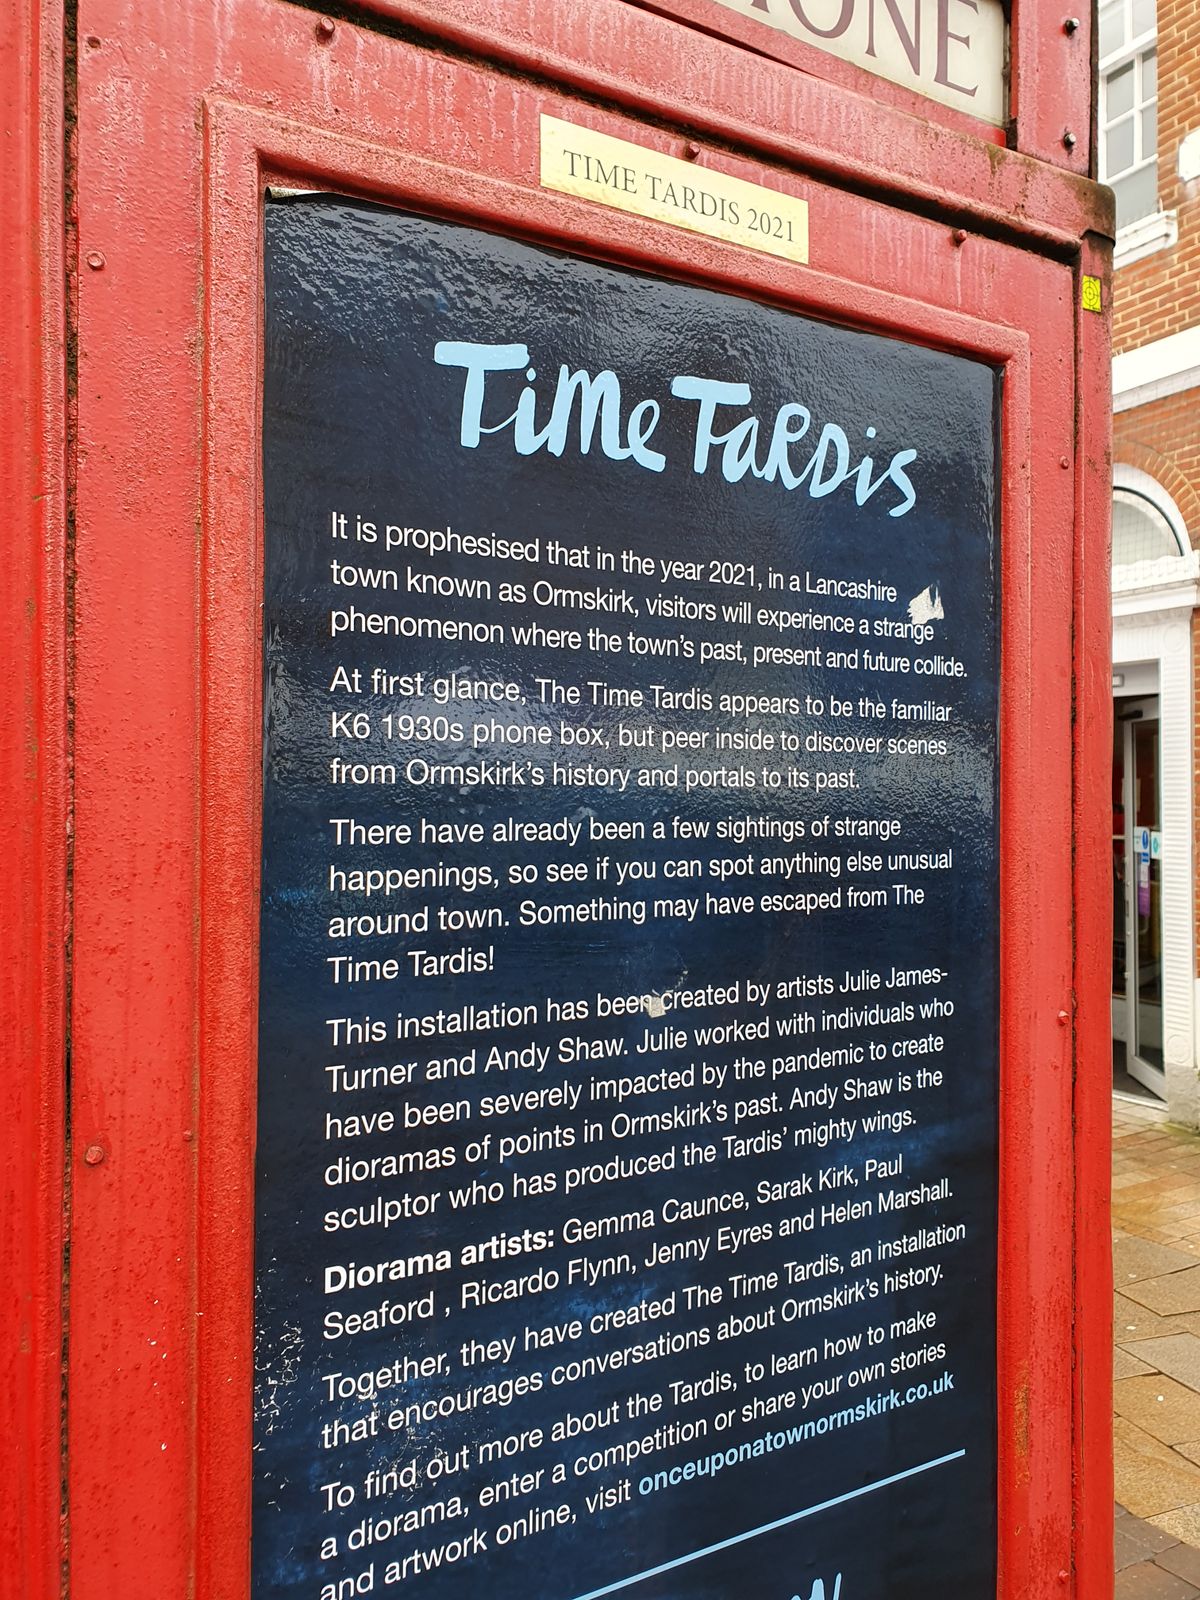 TIME TARDIS 2021
Time Tardis
It is prophesised that in the year 2021, in a Lancashire
town known as Ormskirk, visitors will experience a strange
phenomenon where the town's past, present and future collide.
At first glance, The Time Tardis appears to be the familiar
K6 1930s phone box, but peer inside to discover scenes
from Ormskirk's history and portals to its past.
There have already been a few sightings of strange
happenings, so see if you can spot anything else unusual
around town. Something may have escaped from The
Time Tardis!
This installation has been created by artists Julie James-
Turner and Andy Shaw. Julie worked with individuals who
have been severely impacted by the pandemic to create
dioramas of points in Ormskirk's past. Andy Shaw is the
sculptor who has produced the Tardis' mighty wings.
Diorama artists: Gemma Caunce, Sarak Kirk, Paul
Seaford , Ricardo Flynn, Jenny Eyres and Helen Marshall.
Together, they have created The Time Tardis, an installation
that encourages conversations about Ormskirk's history.
To find out more about the Tardis, to learn how to make
a diorama, enter a competition or share your own stories
and artwork online, visit onceuponatownormskirk.co.uk